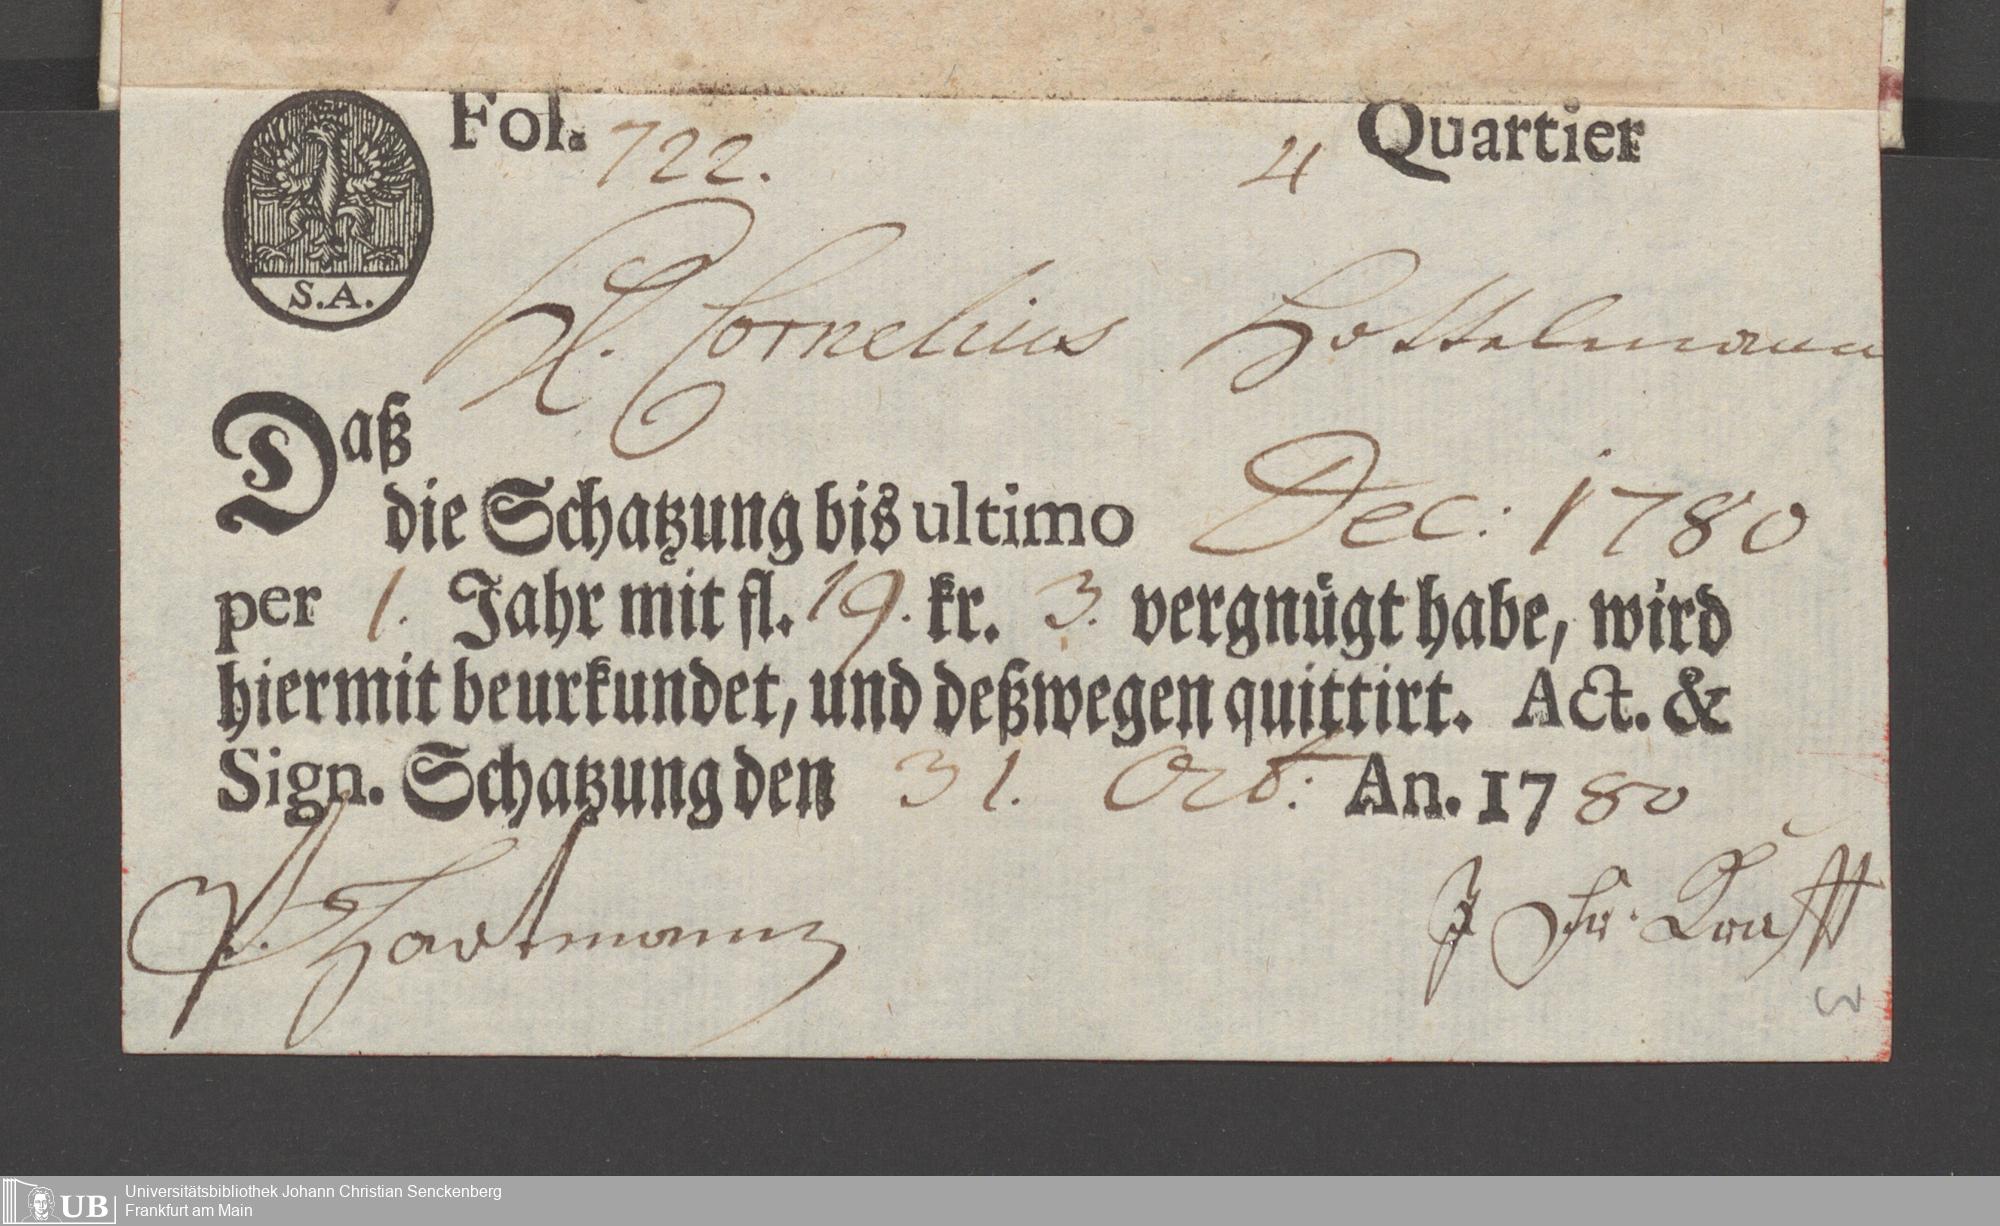 Fol. 722. 4 Quartier
S.A.
H. Cornelius Hottelmann
Daß
die Schatzung bis ultimo Dec: 1780
per 1. Jahr mit fl. 19. kr. 3. vergnügt habe, wird
hiermit beurkundet, und deßwegen quittirt. Act. &
Sign. Schatzung den 31. Oct: An. 1780
Hartmann J Fr. Krafft
3
UB Universitätsbibliothek Johann Christian Senckenberg
Frankfurt am Main